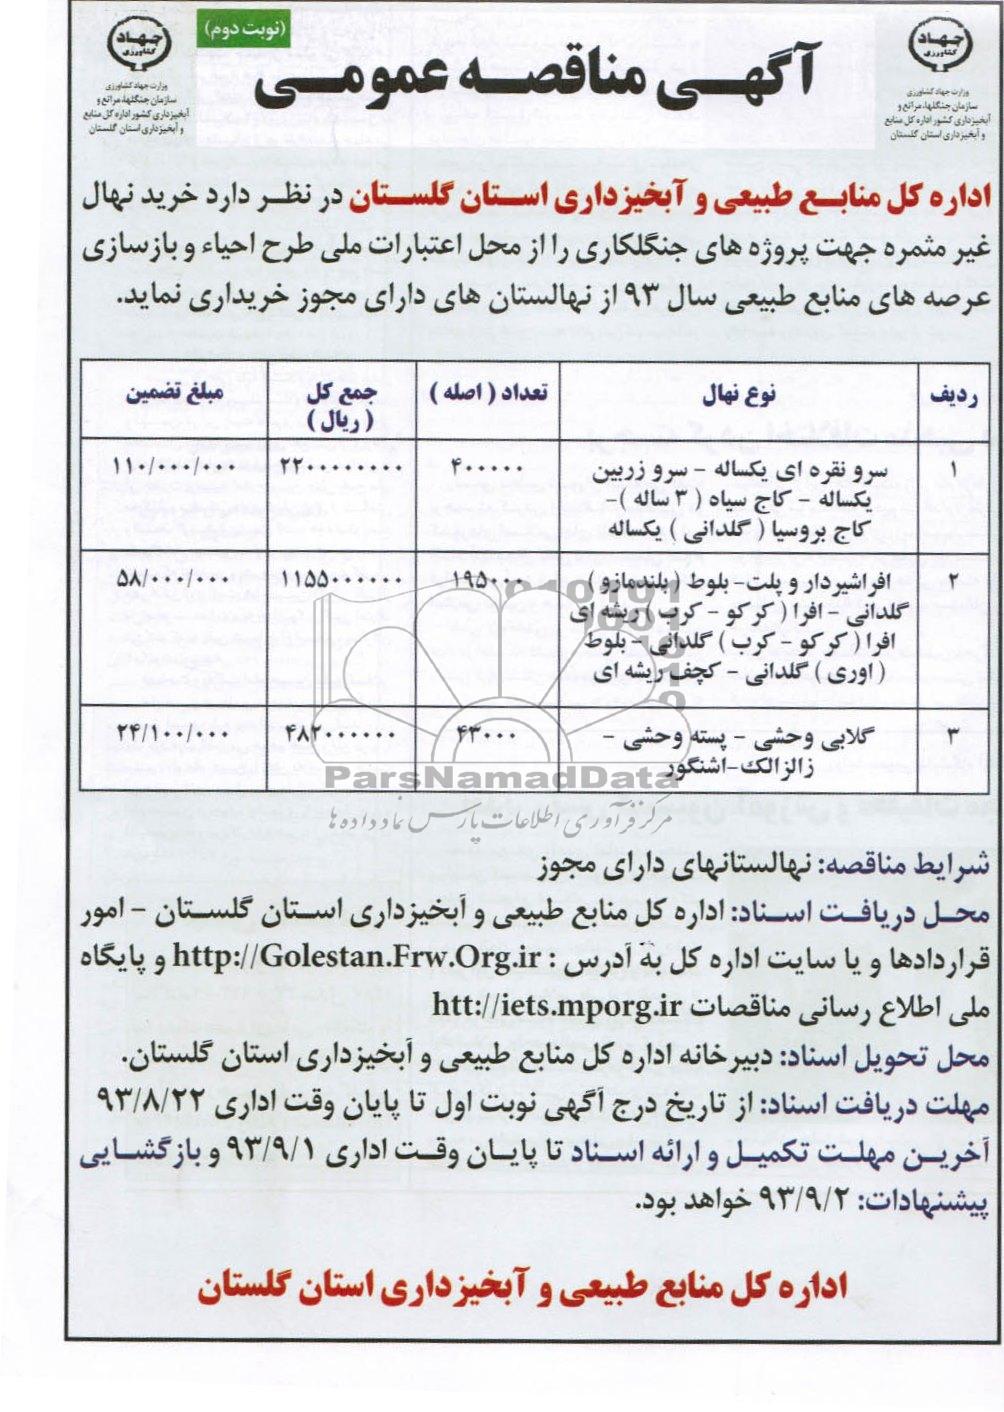 (نوبت دوم)
جهاد
کشاورزی
وزارت جهاد کشاورزی
سازمان جنگلها، مراتع و
آبخیزداری کشور اداره کل منابع
و آبخیزداری استان گلستان
آگهی مناقصه عمومی
جهاد
کشاورزی
وزارت جهاد کشاورزی
سازمان جنگلها، مراتع و
آبخیزداری کشور اداره کل منابع
و آبخیزداری استان گلستان
اداره کل منابع طبیعی و آبخیزداری استان گلستان در نظر دارد خرید نهال
غیر مثمره جهت پروژه های جنگلکاری را از محل اعتبارات ملی طرح احیاء و بازسازی
عرصه های منابع طبیعی سال ۹۳ از نهالستان های دارای مجوز خریداری نماید.
ردیف نوع نهال تعداد ( اصله ) جمع کل ( ریال ) مبلغ تضمین
۱ سرو نقره ای یکساله - سرو زربین ۴۰۰۰۰۰ ۲۲۰۰۰۰۰۰۰۰ ۱۱۰/۰۰۰/۰۰۰
یکساله - کاج سیاه ( ۳ ساله )-
کاج بروسیا ( گلدانی ) یکساله
۲ افراشیردار و پلت- بلوط ( بلندمازو ) ۱۹۵۰۰۰ ۱۱۵۵۰۰۰۰۰۰ ۵۸/۰۰۰/۰۰۰
گلدانی - افرا ( کر کو - کرب ) ریشه ای
افرا ( کر کو - کرب ) گلدانی - بلوط
( اوری ) گلدانی - کچف ریشه ای
۳ گلابی وحشی - پسته وحشی - ۴۳۰۰۰ ۴۸۲۰۰۰۰۰۰ ۲۴/۱۰۰/۰۰۰
زالزالک-اشنگور
ParsNamadData
مرکز فرآوری اطلاعات پارس نماد داده ها
شرایط مناقصه: نهالستانهای دارای مجوز
محل دریافت اسناد: اداره کل منابع طبیعی و آبخیزداری استان گلستان - امور
قراردادها و یا سایت اداره کل به آدرس : http://Golestan.Frw.Org.ir و پایگاه
ملی اطلاع رسانی مناقصات htt://iets.mporg.ir
محل تحویل اسناد: دبیرخانه اداره کل منابع طبیعی و آبخیزداری استان گلستان.
مهلت دریافت اسناد: از تاریخ درج آگهی نوبت اول تا پایان وقت اداری ۹۳/۸/۲۲
آخرین مهلت تکمیل و ارائه اسناد تا پایان وقت اداری ۹۳/۹/۱ و بازگشایی
پیشنهادات: ۹۳/۹/۲ خواهد بود.
اداره کل منابع طبیعی و آبخیزداری استان گلستان